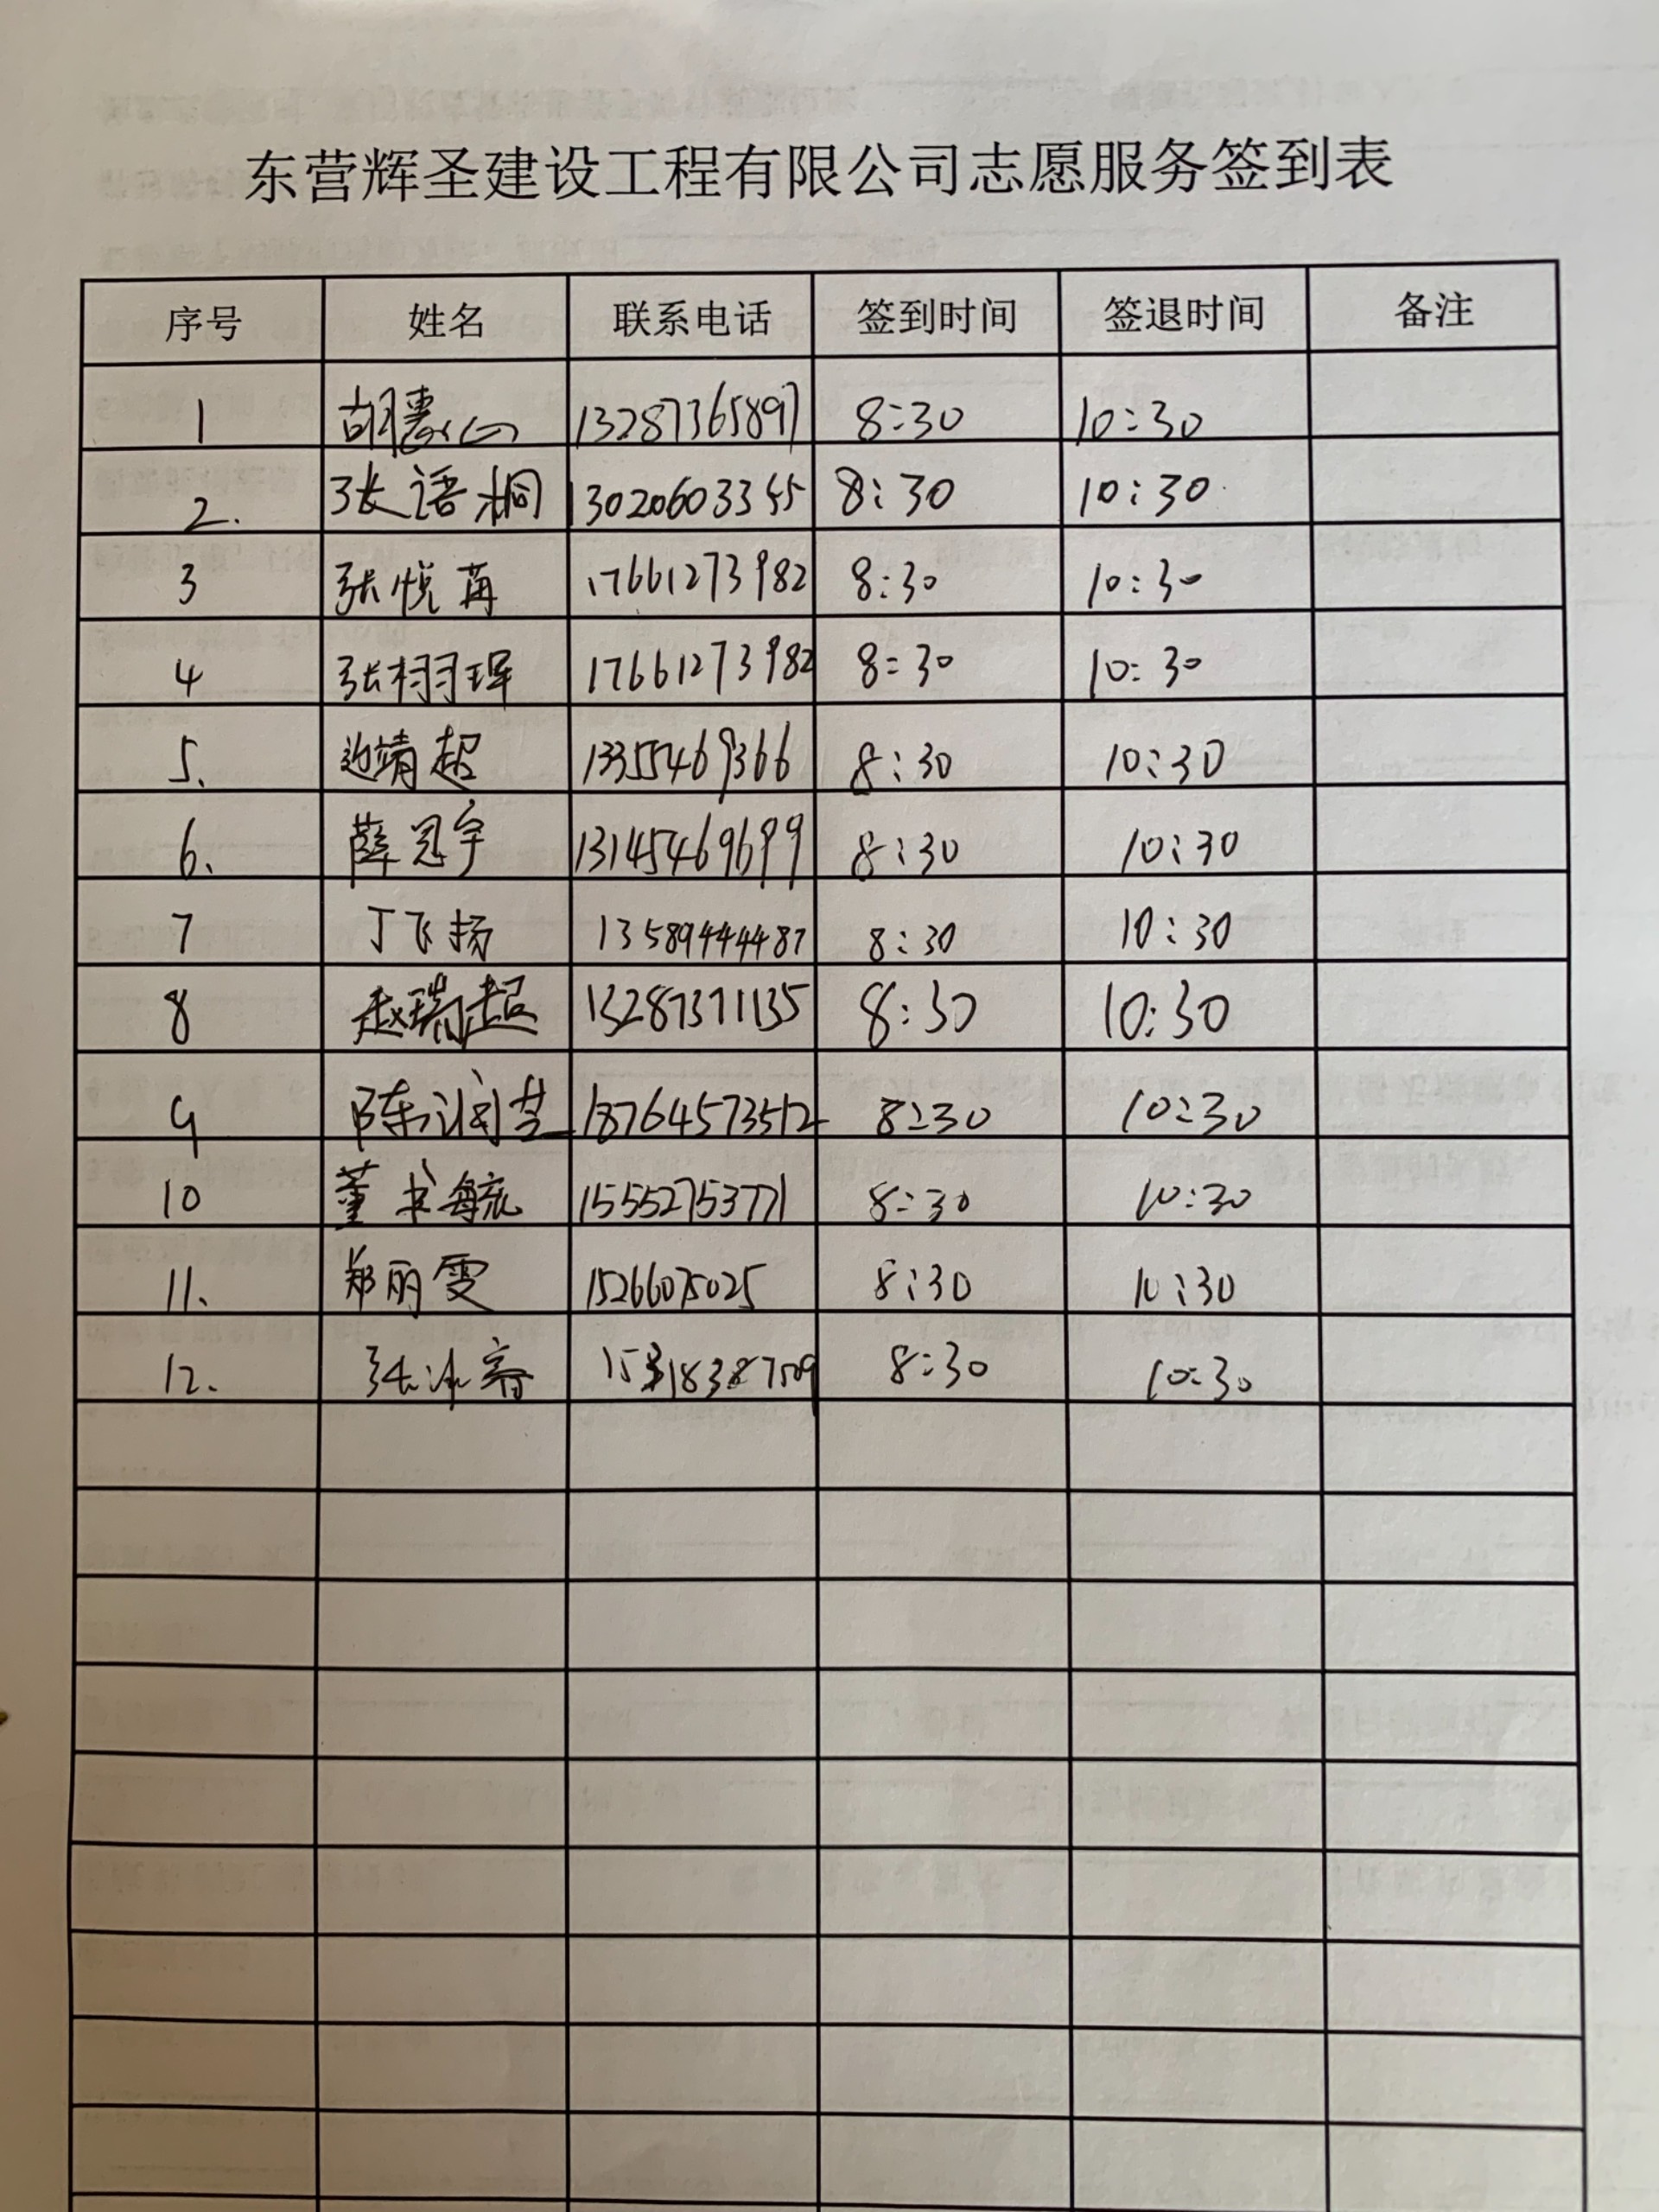 东营辉圣建设工程有限公司志愿服务签到表
序号 姓名 联系电话 签到时间 签退时间 备注
1 胡惠仙 13287365897 8:30 10:30
2. 张语桐 13020603355 8:30 10:30
3 张悦苒 17661273982 8:30 10:30
4 张栩珲 17661273982 8:30 10:30
5. 边靖超 13355469366 8:30 10:30
6. 薛冠宇 13145469699 8:30 10:30
7 丁飞扬 13589444487 8:30 10:30
8 赵瑞超 13287371135 8:30 10:30
9 陈润芝 18764573512 8:30 10:30
10 董书毓 15552753771 8:30 10:30
11. 郑丽雯 15266075025 8:30 10:30
12. 张冰 8:30 10:30